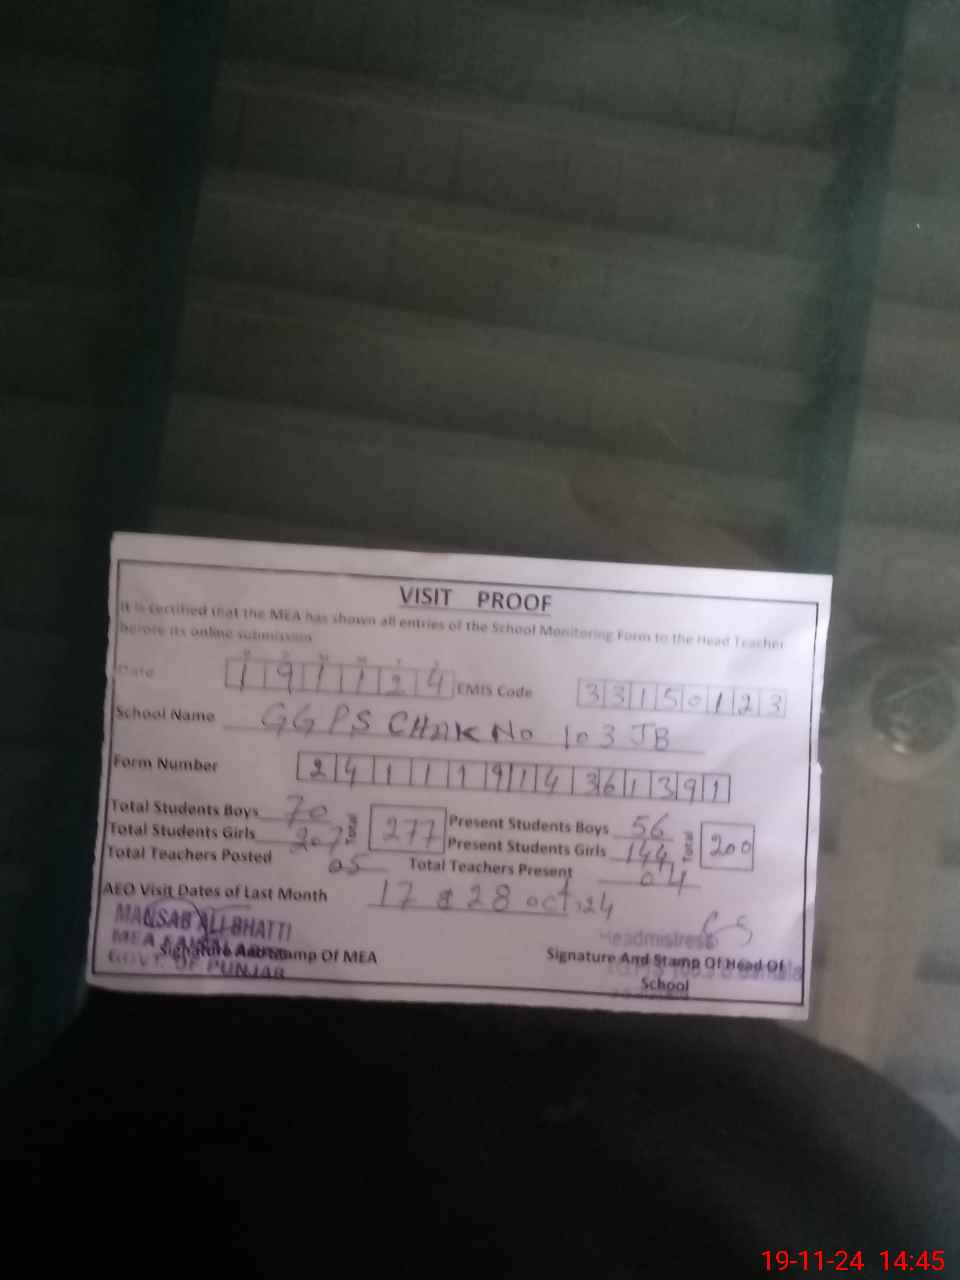 VISIT PROOF
It is certified that the MEA has shown all entries of the School Monitoring Form to the Head Teacher
before its online submission
Date 191124 EMIS Code 33150123
School Name GGPS CHAK No 103 JB
Form Number 24111914361391
Total Students Boys 70 Present Students Boys 56
Total Students Girls 207 277 Present Students Girls 144 200
Total Teachers Posted 05 Total Teachers Present 04
AEO Visit Dates of Last Month 17 & 28 oct, 24
MANSAB ALI BHATTI
MEA
GOVT. OF PUNJAB
Signature And Stamp Of MEA
Headmistress
Signature And Stamp Of Head Of
School
19-11-24 14:45